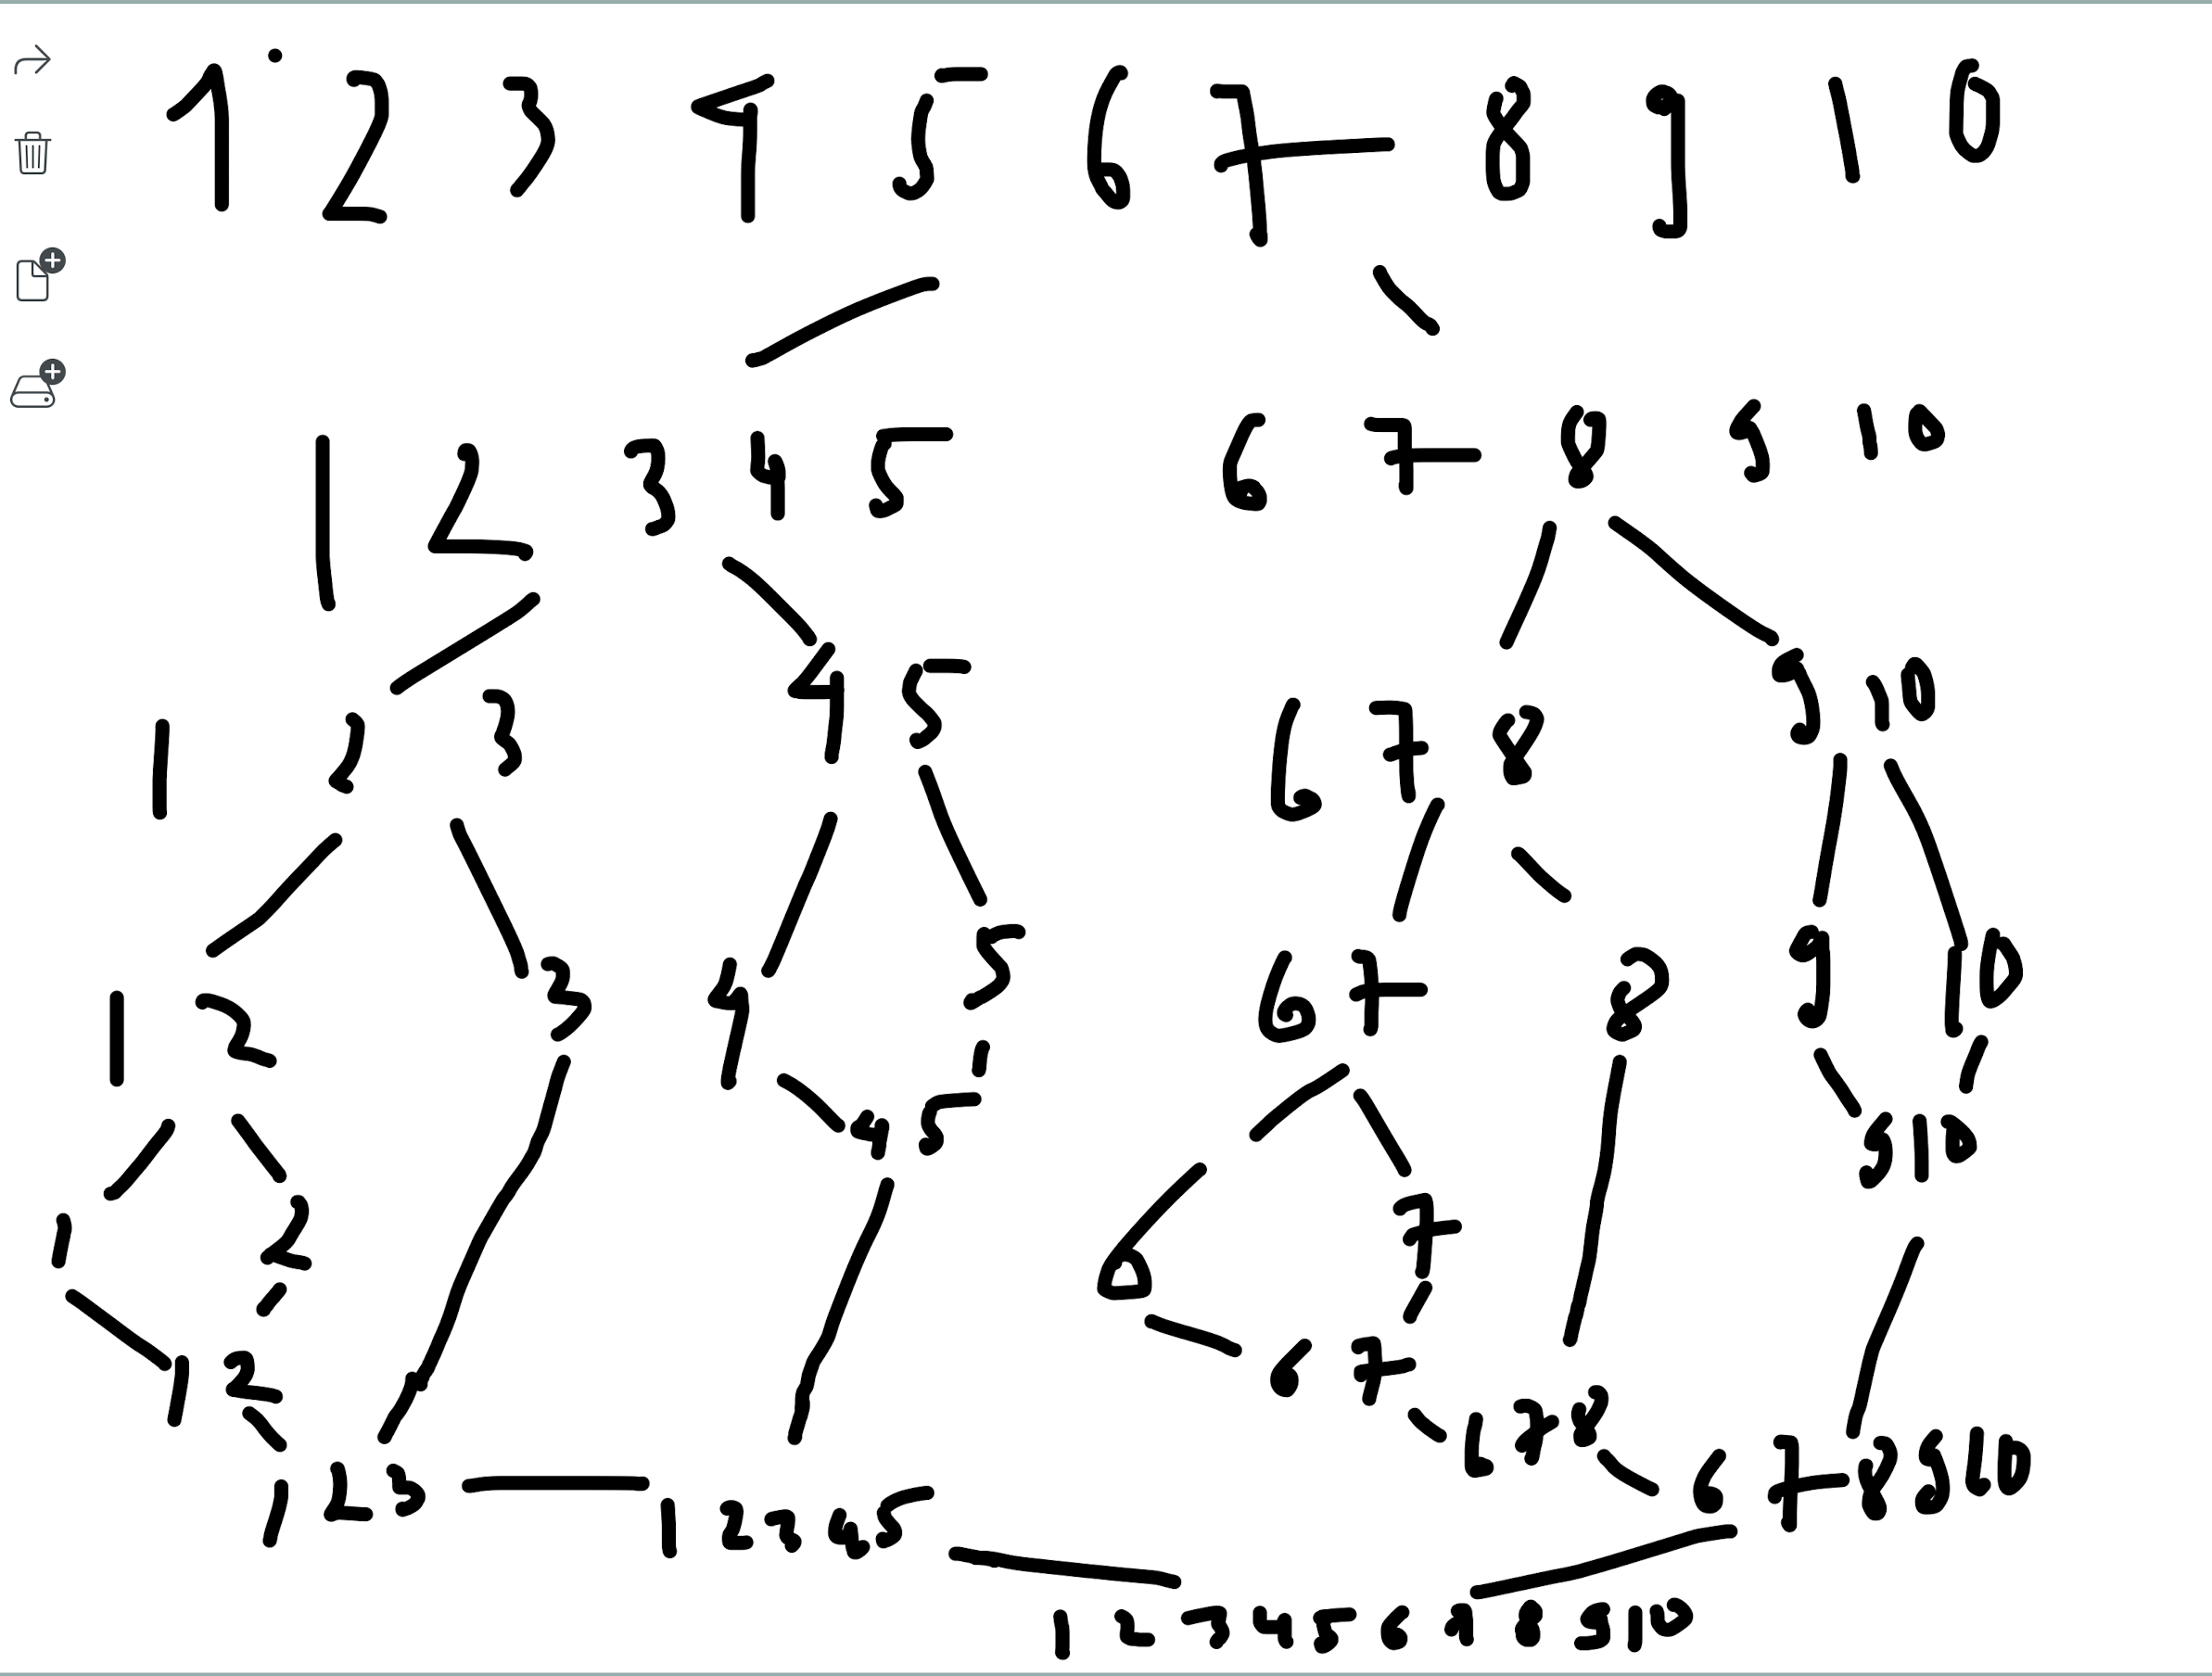 1 2 3 4 5 6 7 8 9 10
1 2 3 4 5 6 7 8 9 10
1 2 3 4 5 6 7 8 9 10
1 2 3 4 5 6 7 8 9 10
4 5 9 10
1 2 6 7
1 2 6 7
6 7 8
1 2 3 1 2 3 4 5 6 7 8 9 10
1 2 3 4 5 6 7 8 9 10